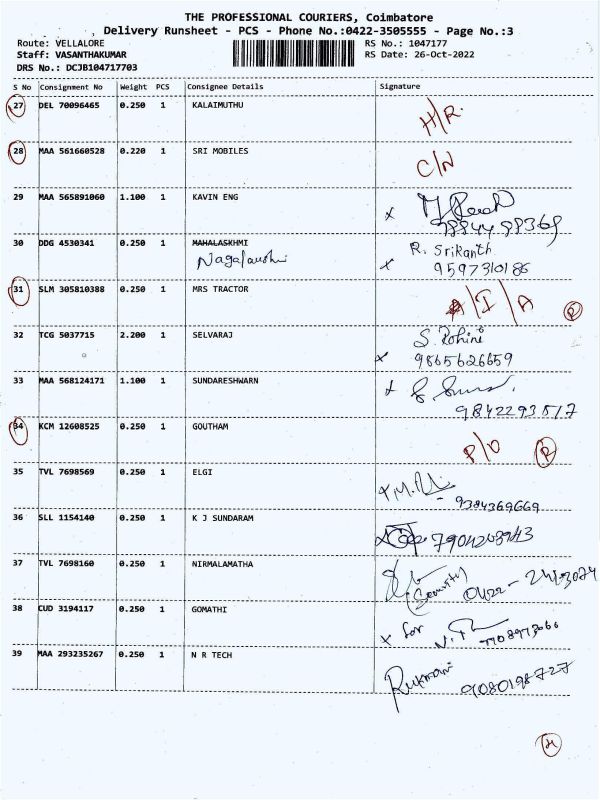 THE PROFESSIONAL COURIERS, Coimbatore
Delivery Runsheet - PCS - Phone No.:0422-3505555 - Page No.:3
Route: VELLALORE RS No.: 1047177
Staff: VASANTHAKUMAR RS Date: 26-Oct-2022
DRS No.: DCJB104717703
S No Consignment No Weight PCS Consignee Details Signature
27 DEL 70096465 0.250 1 KALAIMUTHU H/R.
28 MAA 561660528 0.220 1 SRI MOBILES C/N
29 MAA 565891060 1.100 1 KAVIN ENG x
30 DDG 4530341 0.250 1 MAHALASKHMI R. Srikanth
x 9597310186
31 SLM 305810388 0.250 1 MRS TRACTOR A/I/A R
32 TCG 5037715 2.200 1 SELVARAJ S. Rohini
x 9865626659
33 MAA 568124171 1.100 1 SUNDARESHWARN x
34 KCM 12608525 0.250 1 GOUTHAM P/O R
35 TVL 7698569 0.250 1 ELGI x 9384369669
36 SLL 1154140 0.250 1 K J SUNDARAM
37 TVL 7698160 0.250 1 NIRMALAMATHA
Security
38 CUD 3194117 0.250 1 GOMATHI x for
39 MAA 293235267 0.250 1 N R TECH Rukmani 9080198727